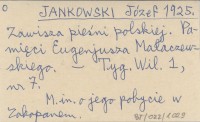 JANKOWSKI Józef 1925.
Zawisza pieśni polskiej. Pa-
mięci Eugenjusza Małaczew-
skiego. — Tyg. Wil. 1,
nr 7.
M.in. o jego pobycie w
Zakopanem.